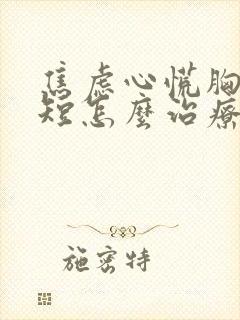 焦虑心慌胸
短怎麼治療
施密特